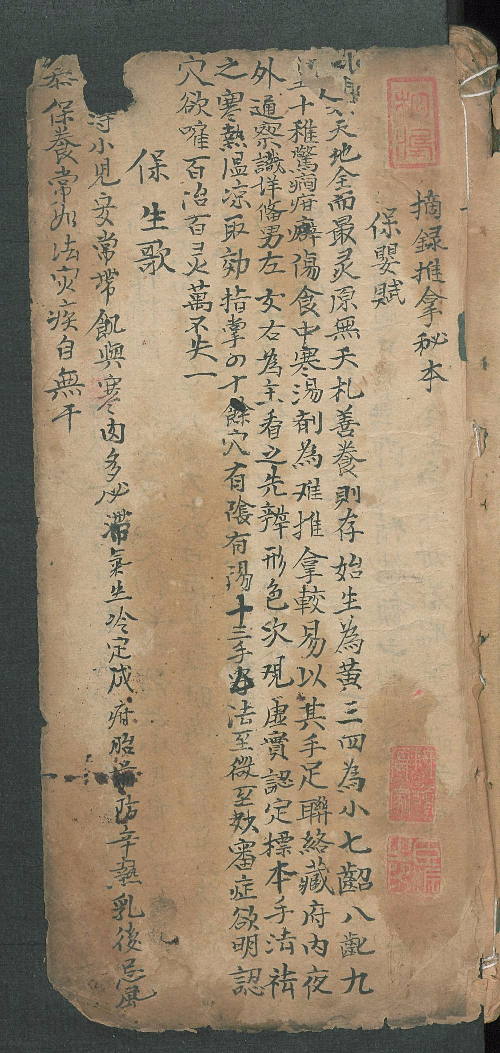 摘錄推拿秘本
保嬰賦
人禀天地全而最灵原無夭札善養則存始生為黃三四為小七齠八齔九
至十稚驚癇疳癖傷食中寒湯劑為难推拿較易以其手足聯絡藏府內夜
外通察識詳條男左女右為主看之先辨形色次現虛實認定標本手法祛
之寒熱温凉取効指掌四十餘穴有陰有湯十三手法至微至妙審症欲明認
穴欲確百治百灵萬不失一
保生歌
小兒安常帶飢與寒肉多必滯氣生冷定成疳胎前防辛熱乳後忌風
参保養常如法灾疾自無干